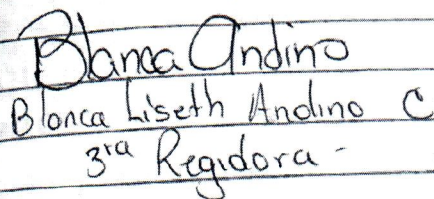 Blanca Andino
Blanca Liseth Andino C
3ra Regidora -